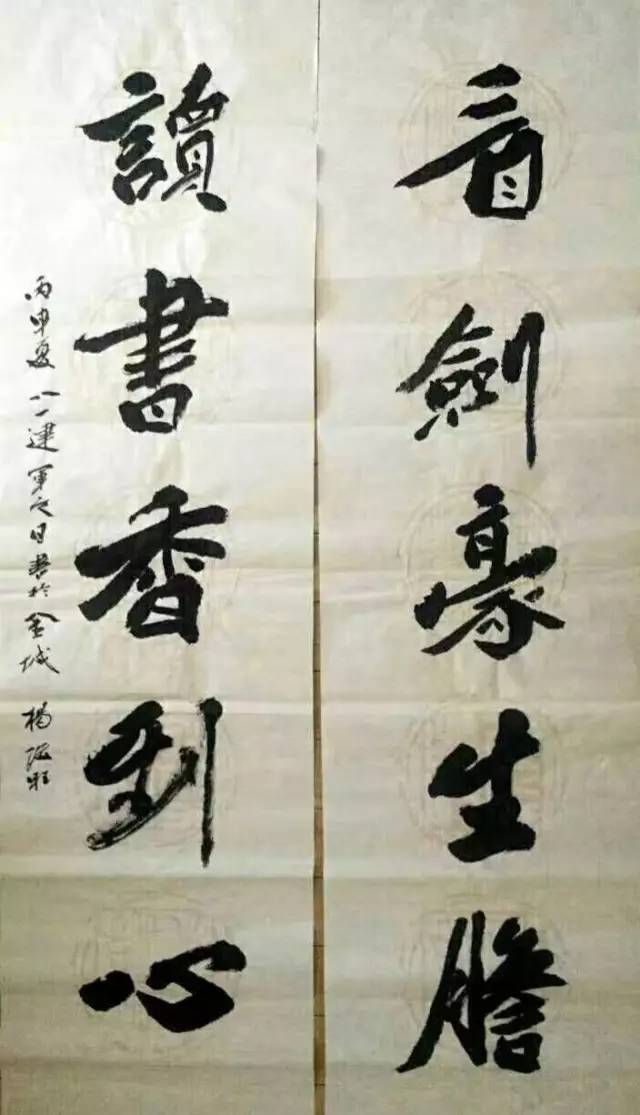 看劍豪生膽
讀書香到心
丙申夏八一建軍之日書於金城 楊